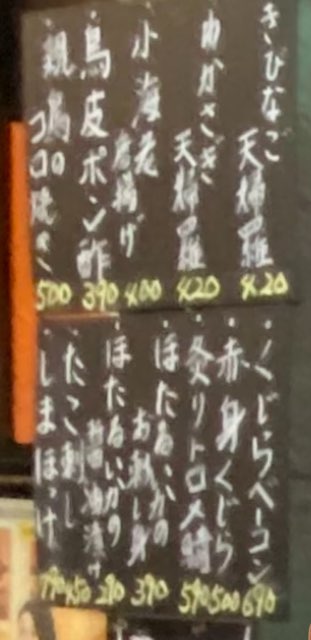 ・きびなご天婦羅 420
・わかさぎ天婦羅 420
・小海老唐揚げ 400
・鳥皮ポン酢 390
・親鳥コロ焼き 500
・くじらベーコン 690
・赤身くじら 500
・炙りトロ〆鯖 590
・ほたるいかのお刺し身 390
・ほたるいかの醤油漬け 290
・たこ刺し 450
・しまほっけ 790